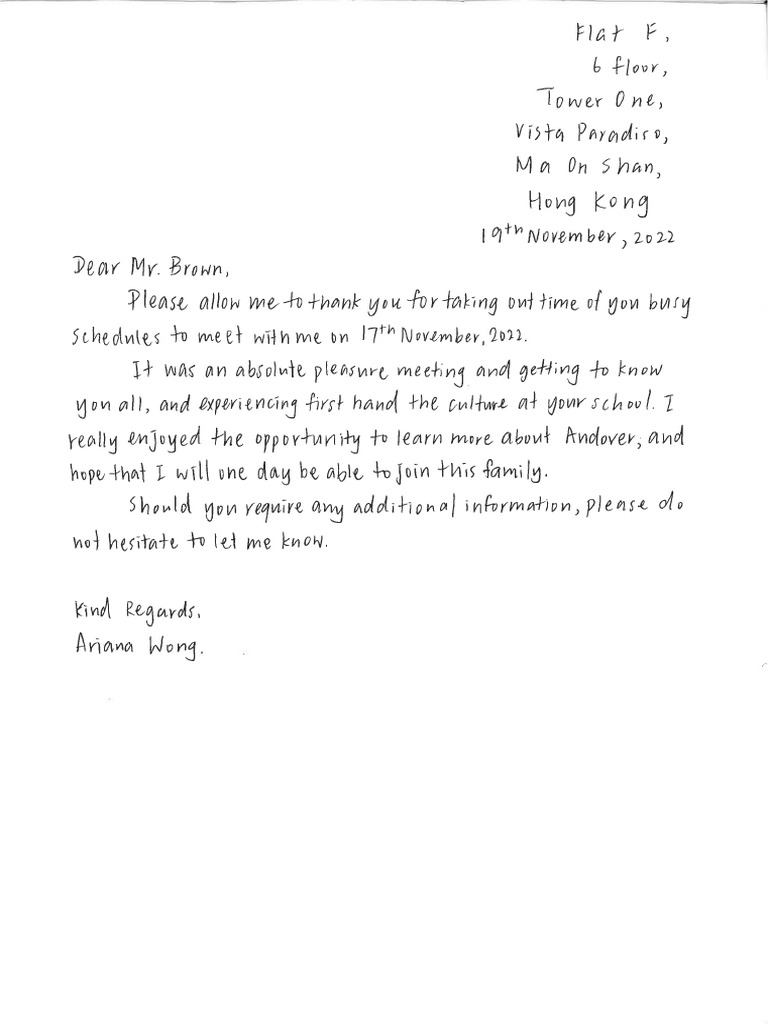 Flat F,
6 floor,
Tower One,
Vista Paradiso,
Ma On Shan,
Hong Kong
19th November, 2022
Dear Mr. Brown,
Please allow me to thank you for taking out time of you busy
schedules to meet with me on 17th November, 2022.
It was an absolute pleasure meeting and getting to know
you all, and experiencing first hand the culture at your school. I
really enjoyed the opportunity to learn more about Andover, and
hope that I will one day be able to join this family.
Should you require any additional information, please do
not hesitate to let me know.
Kind Regards,
Ariana Wong.